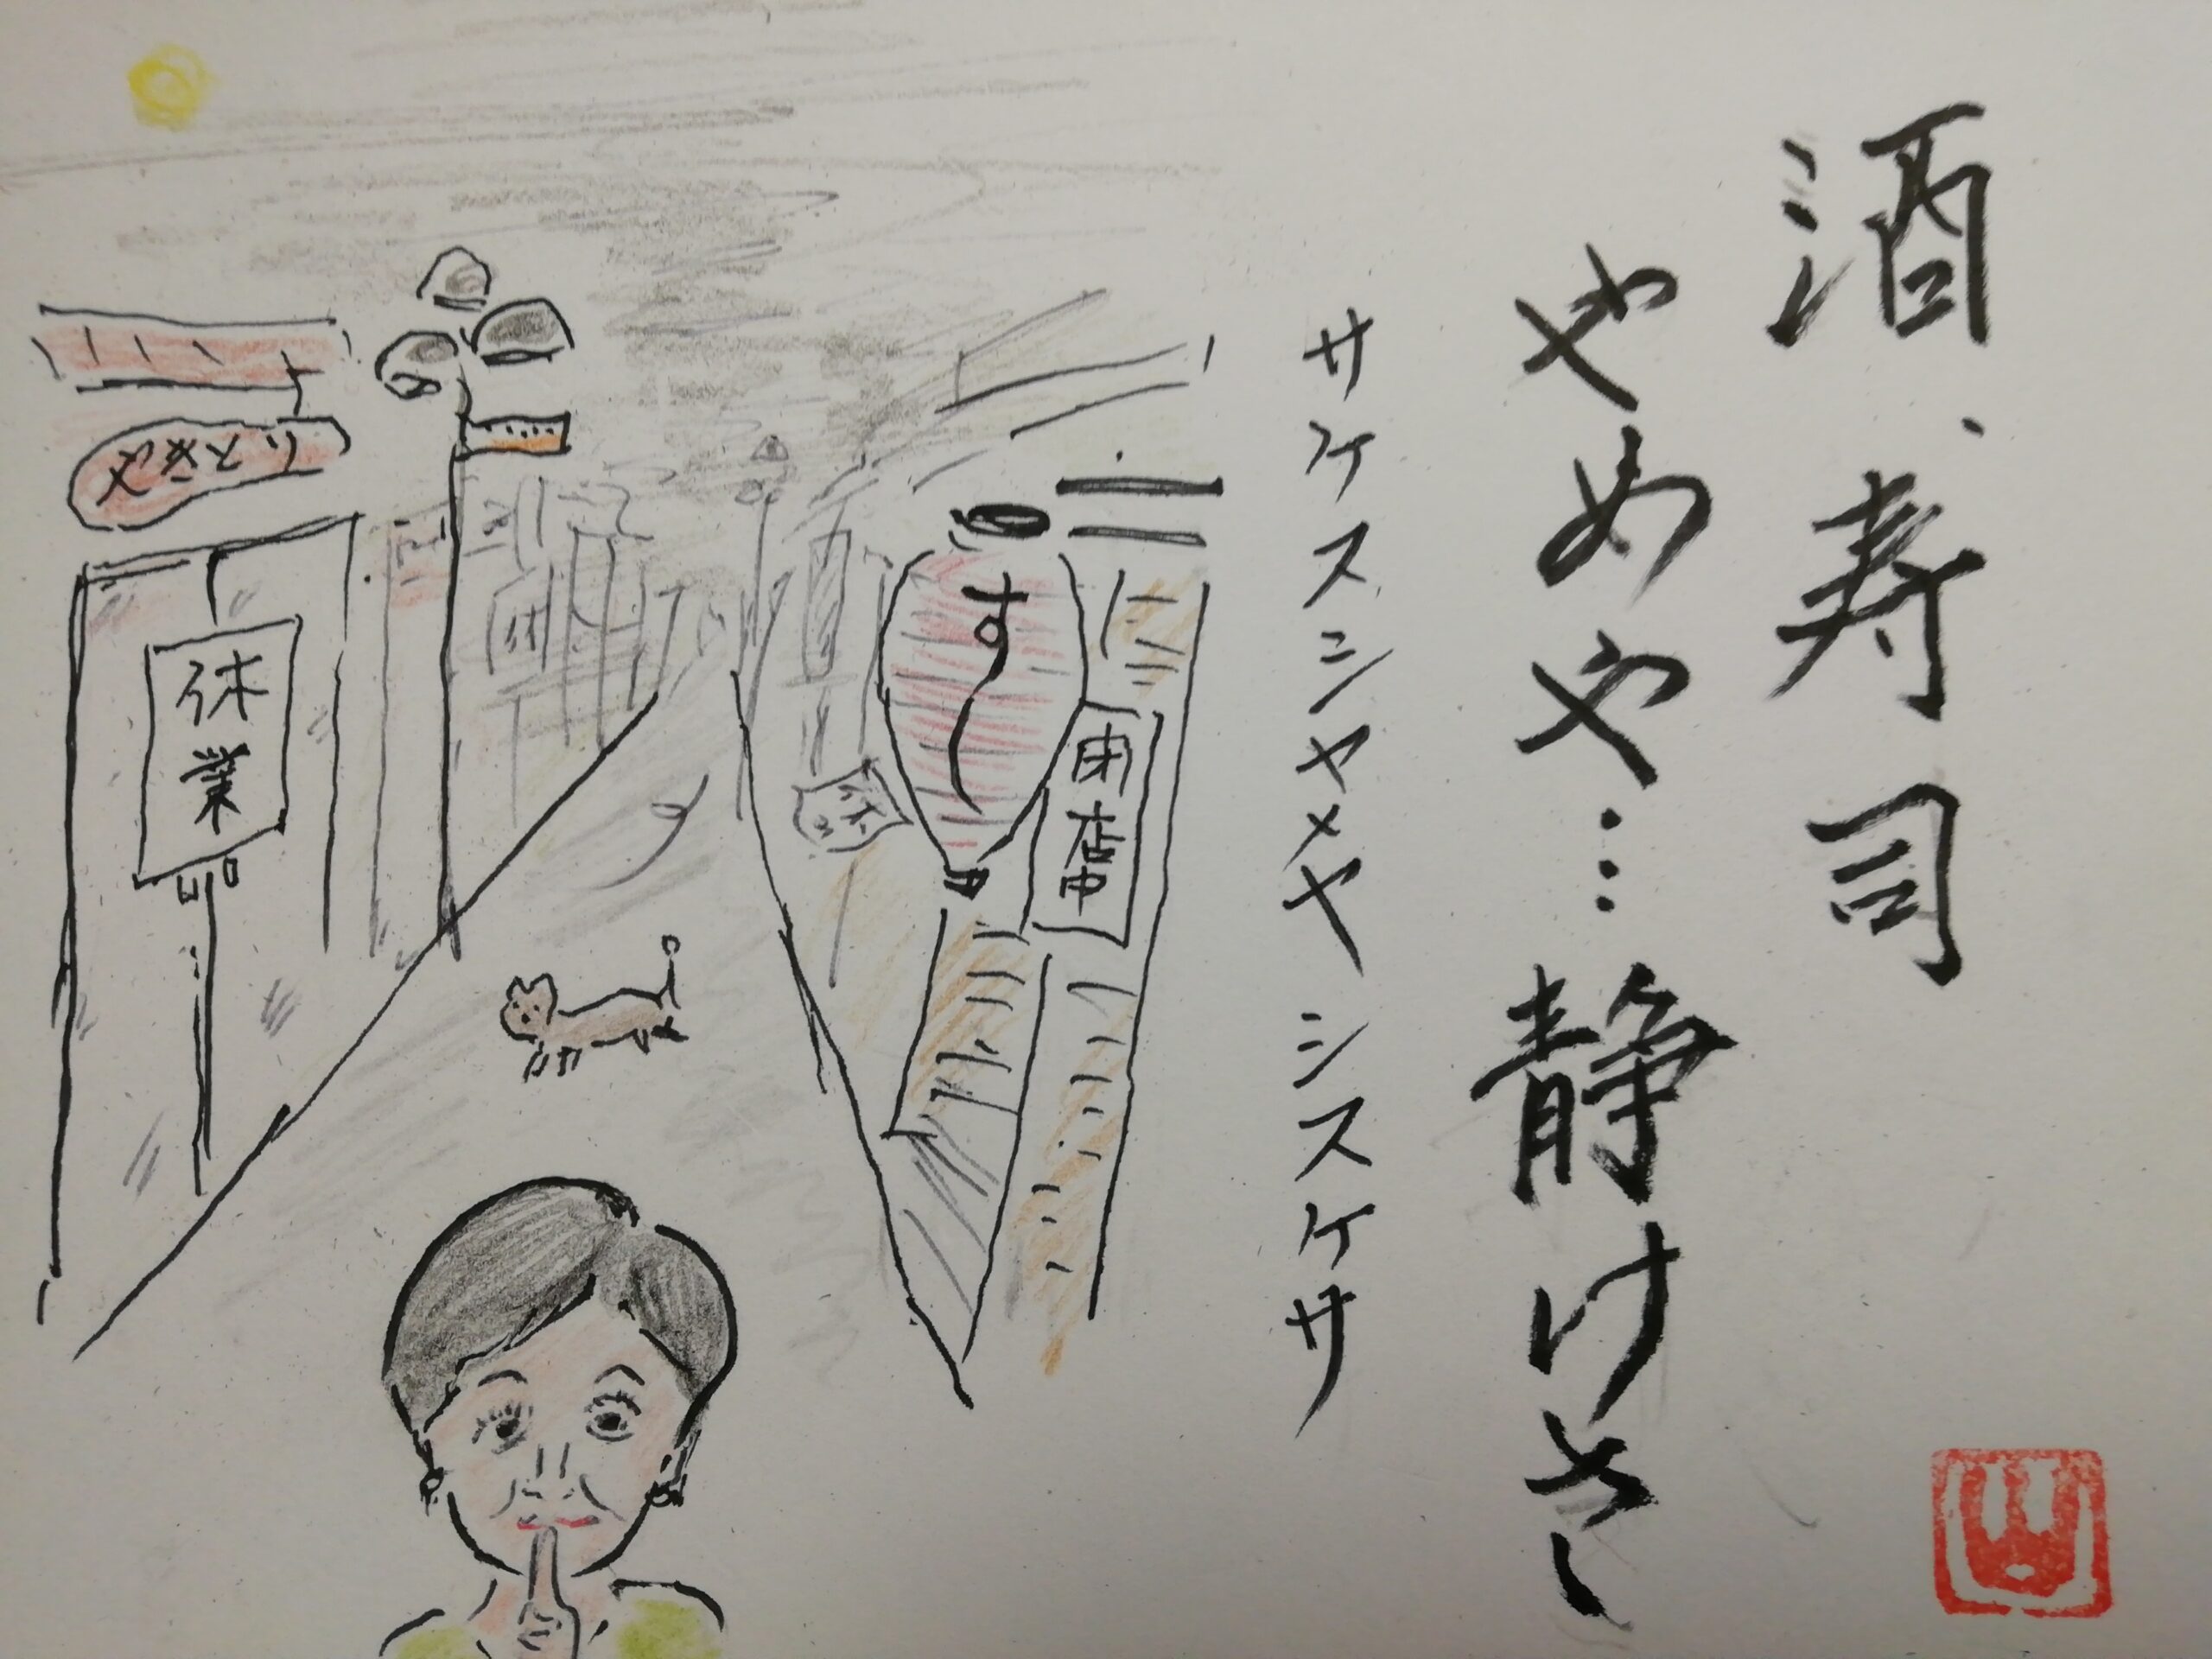 酒、寿司
やめや…静けさ
サケスシヤメヤシスケサ
すし
閉店中
やきとり
休業